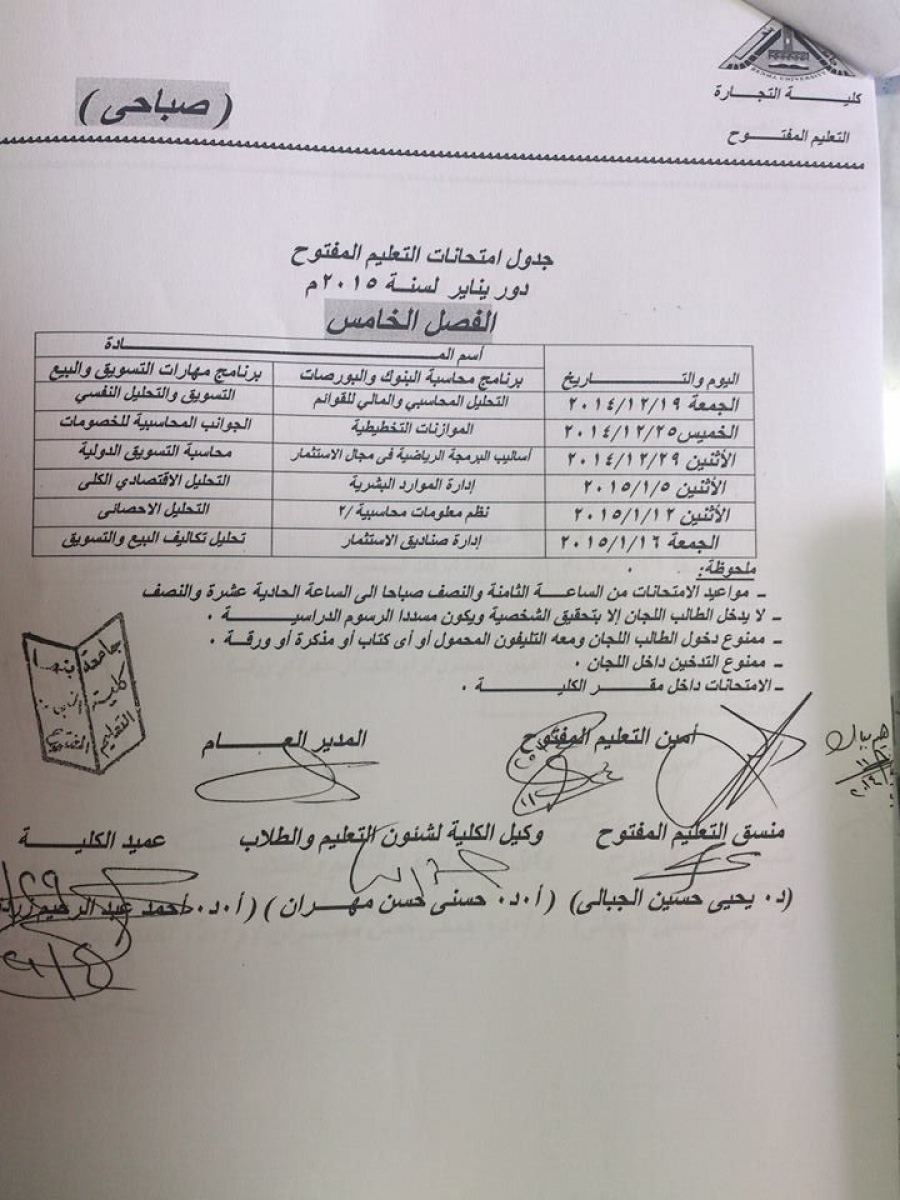 BENHA UNIVERSITY
كليـــة التجـــارة
التعليم المفتـــوح
( صباحى )
جدول امتحانات التعليم المفتوح
دور يناير لسنـــة ٢٠١٥م
الفصل الخامس
اليوم والتـــــــاريخ أسم المـــــــــــادة
برنامج محاسبة البنوك والبورصات برنامج مهارات التسويق والبيع
الجمعة ٢٠١٤/١٢/١٩ التحليل المحاسبي والمالي للقوائم التسويق والتحليل النفسي
الخميس ٢٠١٤/١٢/٢٥ الموازنات التخطيطية الجوانب المحاسبية للخصومات
الأثنين ٢٠١٤/١٢/٢٩ أساليب البرمجة الرياضية فى مجال الاستثمار محاسبة التسويق الدولية
الأثنين ٢٠١٥/١/٥ إدارة الموارد البشرية التحليل الاقتصادي الكلى
الأثنين ٢٠١٥/١/١٢ نظم معلومات محاسبية /٢ التحليل الاحصائى
الجمعة ٢٠١٥/١/١٦ إدارة صناديق الاستثمار تحليل تكاليف البيع والتسويق
ملحوظة:
ـ مواعيد الامتحانات من الساعـــة الثامنة والنصف صباحا الى الساعة الحادية عشرة والنصف
ـ لا يدخل الطالب اللجان إلا بتحقيق الشخصية ويكون مسددا الرسوم الدراسيـــة ٠
ـ ممنوع دخول الطالب اللجان ومعه التليفون المحمول أو أى كتاب أو مذكرة أو ورقـــة ٠
ـ ممنوع التدخين داخل اللجان ٠
ـ الامتحانات داخل مقـــر الكليـــــة ٠
جامعة بنها
كلية
التعليم المفتوح
أمين التعليم المفتوح المدير العـــــام
منسق التعليم المفتوح وكيل الكلية لشئون التعليم والطلاب عميد الكليـــــة
(د٠ يحيى حسين الجبالى) ( أ٠د٠ حسنى حسن مهـران ) ( أ٠د٠ أحمد عبد الرحيم